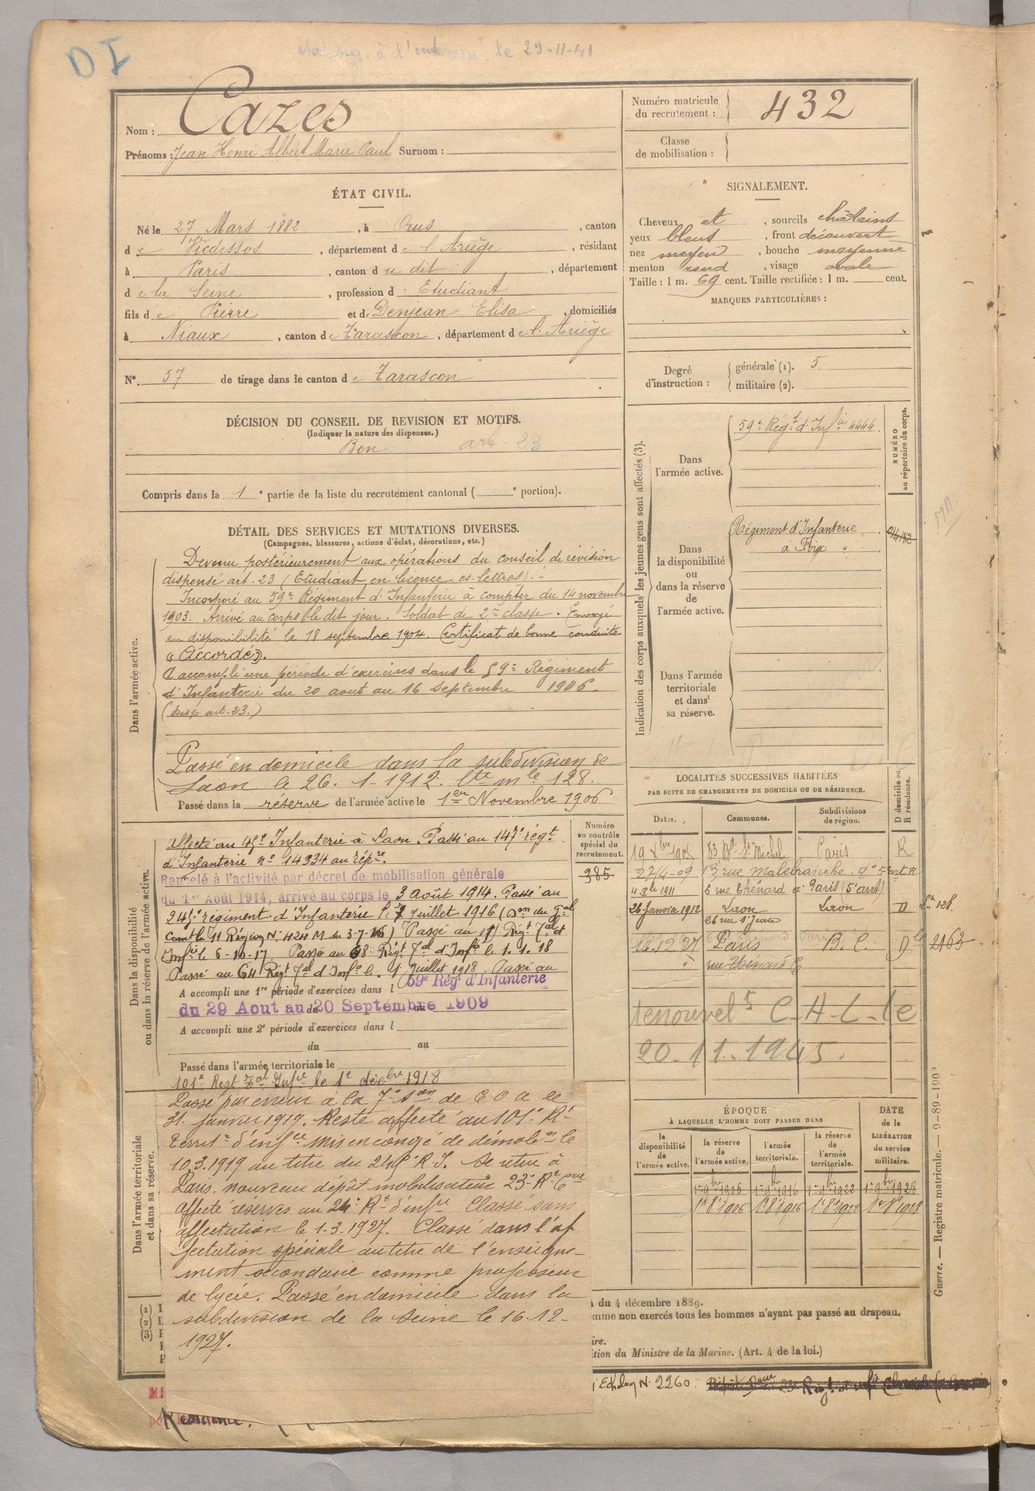 DI
le 29-11-41
Nom : Cazes
Prénoms : Jean Henri Albert Marie Paul Surnom :
Numéro matricule du recrutement : 432
Classe de mobilisation :
ÉTAT CIVIL.
Né le 27 Mars 1882, à Orus, canton
de Vicdessos, département de l'Ariège, résidant
à Paris, canton du dit, département
de la Seine, profession d Etudiant
fils de Pierre et de Denjean Elisa, domiciliés
à Niaux, canton de Tarascon, département de l'Ariège
N° 57 de tirage dans le canton de Tarascon
SIGNALEMENT.
Cheveux et, sourcils châtains
yeux bleus, front découvert
nez moyen, bouche moyenne
menton rond, visage ovale
Taille : 1 m. 69 cent. Taille rectifiée : 1 m. cent.
MARQUES PARTICULIÈRES :
Degré d'instruction : générale (1). 5
militaire (2).
DÉCISION DU CONSEIL DE REVISION ET MOTIFS.
(Indiquer la nature des dispenses.)
Bon art. 23
Compris dans la 1e partie de la liste du recrutement cantonal ( e portion).
DÉTAIL DES SERVICES ET MUTATIONS DIVERSES.
(Campagnes, blessures, actions d'éclat, décorations, etc.)
Dans l'armée active.
Devenu postérieurement aux opérations du conseil de révision
dispensé art. 23 (Etudiant en licence es lettres).
Incorporé au 59e Régiment d'Infanterie à compter du 14 novembre
1903. Arrivé au corps le dit jour. Soldat de 2me classe. Envoyé
en disponibilité le 18 septembre 1904. Certificat de bonne conduite
"Accordé".
A accompli une période d'exercices dans le 59e Régiment
d'Infanterie du 20 aout au 16 Septembre 1906.
(disp. art. 23.)
Passé en domicile dans la subdivision de
Laon le 26.1.1912. lte mle 128.
Passé dans la réserve de l'armée active le 1er Novembre 1906
Indication des corps auxquels les jeunes gens sont affectés (3).
NUMÉRO au répertoire du corps.
Dans l'armée active.
59e Régt d'Infie 4444.
Dans la disponibilité ou dans la réserve de l'armée active.
Régiment d'Infanterie
à Foix
Dans l'armée territoriale et dans sa réserve.
Dans la disponibilité ou dans la réserve de l'armée active.
Numéro au contrôle spécial du recrutement.
385
Affecté au 45e Infanterie à Laon. Passé au 147e régt
d'Infanterie no 14334 au répre.
Rappelé à l'activité par décret de mobilisation générale
du 1er Août 1914, arrivé au corps le 3 août 1914. Passé au
245e régiment d'Infanterie le 7 juillet 1916
Infie le 6-10-17 Passé au 68e Régt Tal d'Infie le 1.1.18
Passé au 64 Regt Tal d'Infie le 1 Juillet 1918 Passé au
A accompli une 1re période d'exercices dans l 59e Rég. d'Infanterie
du 29 Aout au 20 Septembre 1909
A accompli une 2e période d'exercices dans l
du au
Passé dans l'armée territoriale le
101e Regt Tal Infie le 1e décbre 1918
LOCALITÉS SUCCESSIVES HABITÉES
PAR SUITE DE CHANGEMENTS DE DOMICILE OU DE RÉSIDENCE.
Dates. Communes. Subdivisions de région. D domicile ou R résidence.
19 Xbre 1905 83 Bd St Michel Paris R
27-4-09 13 rue Malebranche
4-9bre 1911 6 rue Thénard à Paris (5e arrt)
26 Janvier 1912 Laon Laon D
26 rue St Jean
16.12.27 Paris B.C. D 2163
rue Thénard 6
renouvelt C-H-L-le
20-11-1945.
Dans l'armée territoriale et dans sa réserve.
Passé par erreur à la 7e
31 janvier 1919. Reste affecté au 101e Rt
Territ. d'infie mis en congé de démobon le
10.3.1919 au titre du 245e R.I. Se retire à
Paris. nouveau dépôt mobilisateur 23e Rt
affecté réserves au 24e Rt d'infie Classé sans
affectation le 1.3.1927. Classé dans l'af
fectation spéciale au titre de l'enseigne-
ment secondaire comme professeur
de lycée. Passé en domicile dans la
subdivision de la Seine le 16-12-
1927.
ÉPOQUE
À LAQUELLE L'HOMME DOIT PASSER DANS
la disponibilité de l'armée active. la réserve de l'armée active. l'armée territoriale. la réserve de l'armée territoriale.
DATE de la LIBÉRATION du service militaire.
1er 9bre 1906 1er 9bre 1916 1er 9bre 1922 1er 9bre 1928
1er 8e 1906 1er 8e 1916 1er 8e 1922 1er 8e 1928
Guerre. — Registre matricule. — 9-89-190
(1)
(2)
(3)
du 4 décembre 1889.
mme non exercés tous les hommes n'ayant pas passé au drapeau.
ire.
ition du Ministre de la Marine. (Art. 4 de la loi.)
Echelon No 2260.